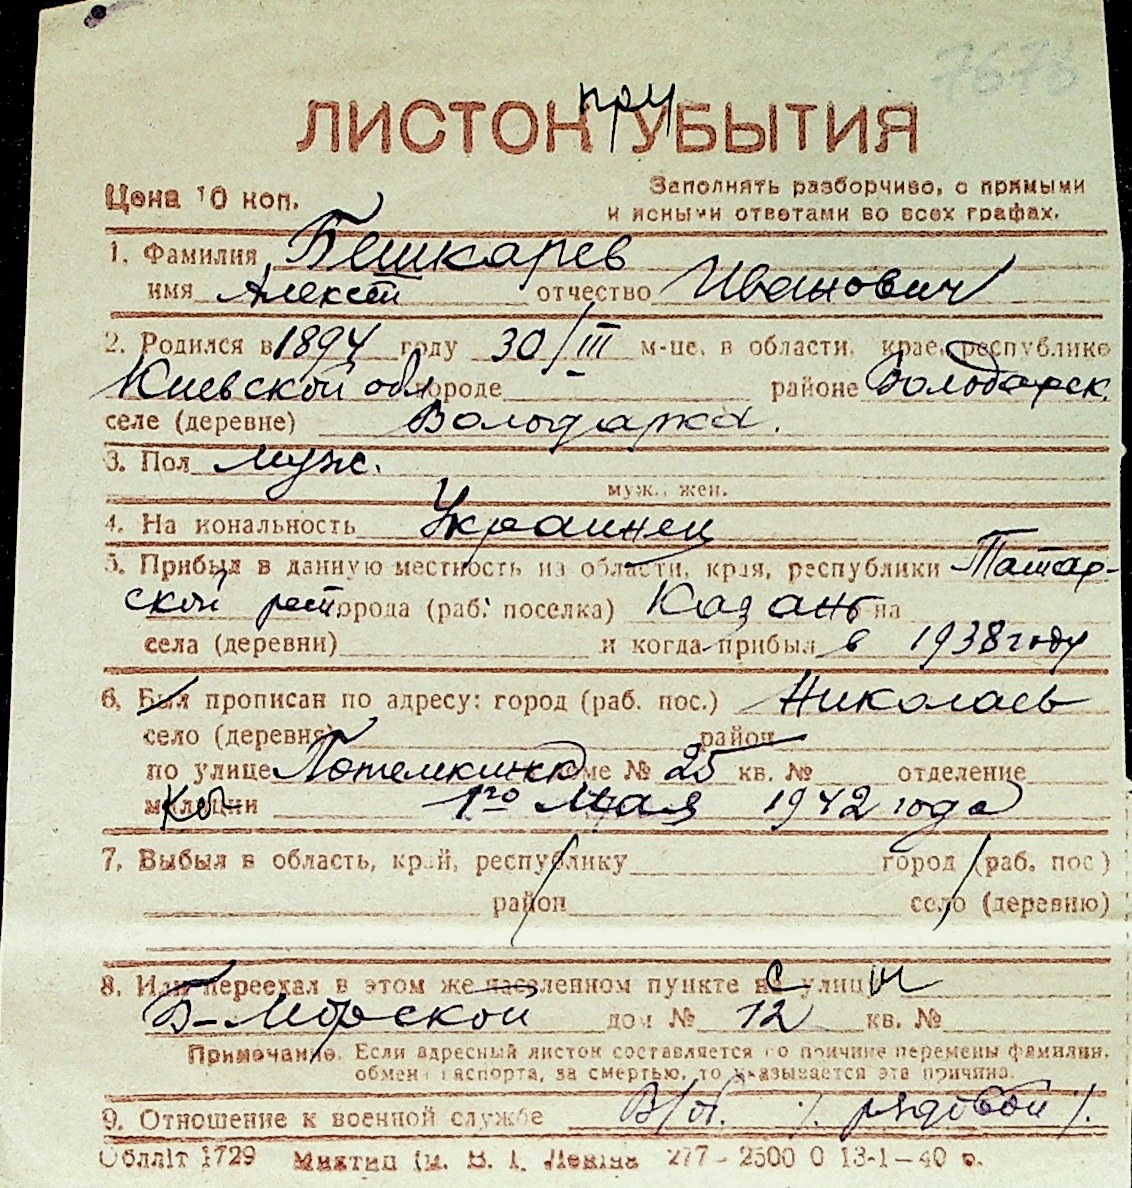 7678
ЛИСТОК при УБЫТИЯ
Цена 10 коп.
Заполнять разборчиво, с прямыми
и ясными ответами во всех графах.
1. Фамилия Бешкарев
имя Алексей отчество Иванович
2. Родился в 1894 году 30/III м-це, в области, крае, республике
Киевской обл. городе районе Володарск.
селе (деревне) Володарка.
3. Пол муж.
муж., жен.
4. Национальность Украинец
5. Прибыл в данную местность из области, края, республики Татар-
ской респ. города (раб. поселка) Казань на
села (деревни) и когда прибыл в 1938 году
6. Был прописан по адресу: город (раб. пос.) Николаев
село (деревня) район
по улице Потемкинск доме № 25 кв. № отделение
милиции 1го Мая 1942 года
7. Выбыл в область, край, республику город (раб. пос.)
район село (деревню)
8. Или переехал в этом же населенном пункте с улицы
Б-Морской дом № 12 кв. №
Примечание. Если адресный листок составляется по причине перемены фамилии,
обмена паспорта, за смертью, то указывается эта причина.
9. Отношение к военной службе В/об. /. рядовой /.
Обллiт 1729 Миктип iм. В. I. Ленiна 277-2500 0 13-1-40 р.